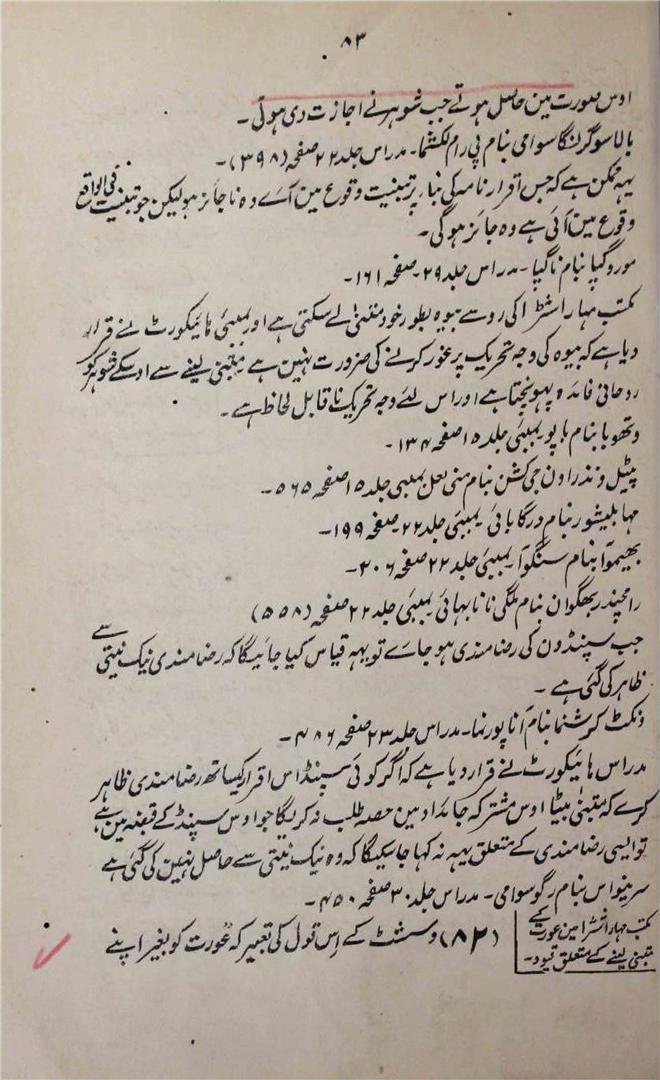 ۸۳
اوس صورت مین حاصل ہوتے جب شوہر نے اجازت دی ہوتی۔
بالاسوگرلنگا سوامی بنام پی رام لکشما۔ مدراس جلد ۲۲ صفحہ (۳۹۸)۔
یہہ ممکن ہے کہ جس اقرار نامہ کی بنا پر تبنیت وقوع مین آئے وہ ناجائز ہو لیکن جو تبنیت فی الواقع
وقوع مین آئی ہے وہ جائز ہوگی۔
موروگپا بنام ناگپا۔ مدراس جلد ۲۹۔ صفحہ ۱۶۱۔
مکتب مہاراشٹرا کی رو سے بیوہ بطور خود متبنیٰ لے سکتی ہے اور بمبئی ہائیکورٹ نے قرار
دیا ہے کہ بیوہ کی وجہ تحریک پر غور کرنے کی ضرورت نہین ہے متبنیٰ لینے سے اوسکے شوہر کو
روحانی فائدہ پہونچتا ہے اور اس لئے وجہ تحریک ناقابل لحاظ ہے۔
وتھوبا بنام باپو بمبئی جلد ۱۵ صفحہ ۱۳۴۔
پٹیل ونذراون جی کشن بنام منی لعل بمبئی جلد ۱۵ صفحہ ۵۶۵۔
مہابلیشور بنام درگابائی بمبئی جلد ۲۲۔ صفحہ ۱۹۹۔
بھیموآ بنام سنگوآ بمبئی جلد ۲۲ صفحہ ۲۰۶۔
رامچندر بھگوان بنام ملکی نانابھائی بمبئی جلد ۲۲ صفحہ (۵۵۸)
جب سپنڈون کی رضامندی ہو جائے تو یہہ قیاس کیا جائیگا کہ رضامندی نیک نیتی سے
ظاہر کی گئی ہے۔
ونکٹ کرشنما بنام اناپورنما۔ مدراس جلد ۲۳ صفحہ ۴۸۶۔
مدراس ہائیکورٹ نے قرار دیا ہے کہ اگر کوئی سپنڈ اس اقرار کیساتھ رضامندی ظاہر
کرے کہ متبنیٰ بیٹا اوس مشترکہ جائداد مین حصہ طلب نہ کریگا جو اوس سپنڈ کے قبضہ مین ہے
تو ایسی رضامندی کے متعلق یہہ نہ کہا جاسکیگا کہ وہ نیک نیتی سے حاصل نہین کی گئی ہے
سرینواس بنام رگوسوامی۔ مدراس جلد ۳۰ صفحہ ۴۵۰۔
مکتب مہاراشٹرا مین عورت کے
متبنیٰ لینے کے متعلق قیود۔
(۸۲) وسشٹ کے اس قول کی تعبیر کہ عورت کو بغیر اپنے